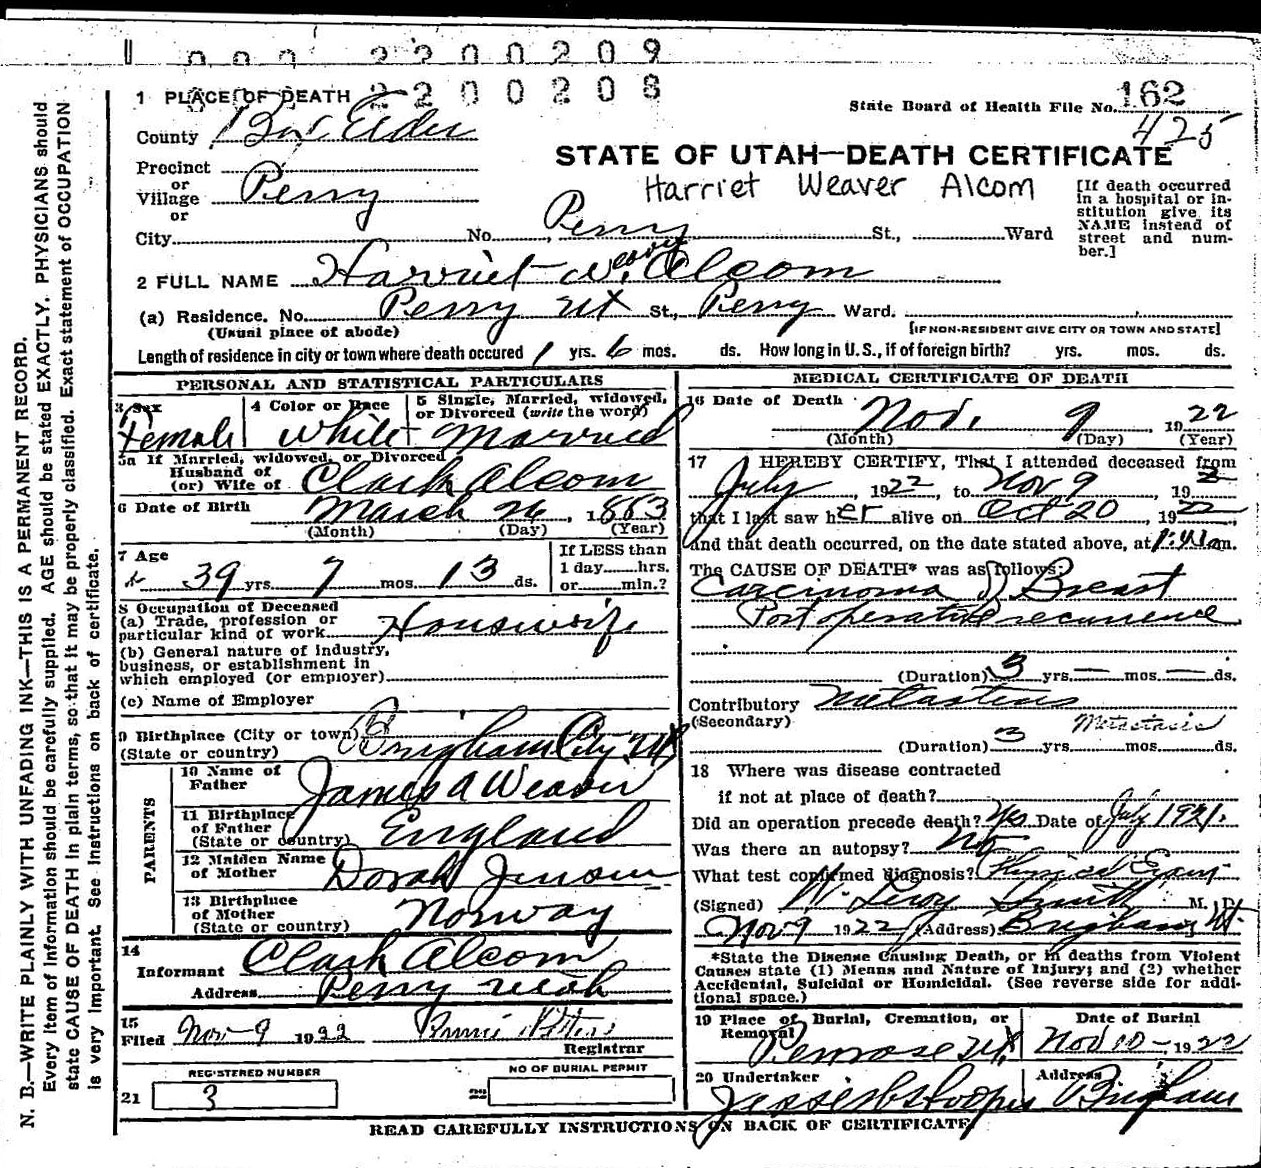 2200209
2200208
1 PLACE OF DEATH
State Board of Health File No. 162
425
County Box Elder
STATE OF UTAH—DEATH CERTIFICATE
Precinct
or
Village Perry
or
Harriet Weaver Alcom
[If death occurred
in a hospital or in-
stitution give its
NAME instead of
street and num-
ber.]
City No. Perry St., Ward
2 FULL NAME Harriet W. Alcom
eaver
(a) Residence. No. Perry Ut St., Perry Ward.
(Usual place of abode) [IF NON-RESIDENT GIVE CITY OR TOWN AND STATE]
Length of residence in city or town where death occured 1 yrs. 6 mos. ds. How long in U. S., if of foreign birth? yrs. mos. ds.
PERSONAL AND STATISTICAL PARTICULARS
3 Sex 4 Color or Race 5 Single, Married, widowed,
or Divorced (write the word)
Female White Married
5a If Married, widowed, or Divorced
Husband of
(or) Wife of Clark Alcom
6 Date of Birth March 26, 1883
(Month) (Day) (Year)
7 Age 39 yrs. 7 mos. 13 ds.
If LESS than
1 day hrs.
or min.?
8 Occupation of Deceased
(a) Trade, profession or
particular kind of work Housewife
(b) General nature of industry,
business, or establishment in
which employed (or employer)
(c) Name of Employer
9 Birthplace (City or town)
(State or country) Brigham City Ut
PARENTS
10 Name of
Father James A Weaver
11 Birthplace
of Father
(State or country) England
12 Maiden Name
of Mother Dorah Jenson
13 Birthplace
of Mother
(State or country) Norway
14
Informant Clark Alcom
Address Perry Utah
15
Filed Nov-9 1922
Registrar
REGISTERED NUMBER
21 3
NO OF BURIAL PERMIT
22
MEDICAL CERTIFICATE OF DEATH
16 Date of Death Nov. 9 1922
(Month) (Day) (Year)
17 I HEREBY CERTIFY, That I attended deceased from
July, 1922, to Nov 9, 192
that I last saw her alive on Oct 20, 1922,
and that death occurred, on the date stated above, at 1:41 am.
The CAUSE OF DEATH* was as follows:
Carcinoma of Breast
Post operative recurrence
(Duration) 3 yrs. — mos. — ds.
Contributory Metastasis
(Secondary) Metastasis
(Duration) 3 yrs. mos. ds.
18 Where was disease contracted
if not at place of death?
Did an operation precede death? Yes Date of July 1921.
Was there an autopsy? No
What test confirmed diagnosis? Physical Exam
(Signed) W. Leroy Smith M. D.
Nov 9 1922 (Address) Brigham, Ut.
*State the Disease Causing Death, or in deaths from Violent
Causes state (1) Means and Nature of Injury; and (2) whether
Accidental, Suicidal or Homicidal. (See reverse side for addi-
tional space.)
19 Place of Burial, Cremation, or
Removal Penrose Ut. Date of Burial
Nov 10-1922
20 Undertaker Address
Brigham
READ CAREFULLY INSTRUCTIONS ON BACK OF CERTIFICATE
N. B.—WRITE PLAINLY WITH UNFADING INK—THIS IS A PERMANENT RECORD.
Every item of Information should be carefully supplied. AGE should be stated EXACTLY. PHYSICIANS should
state CAUSE OF DEATH in plain terms, so that it may be properly classified. Exact statement of OCCUPATION
is very Important. See Instructions on back of certificate.